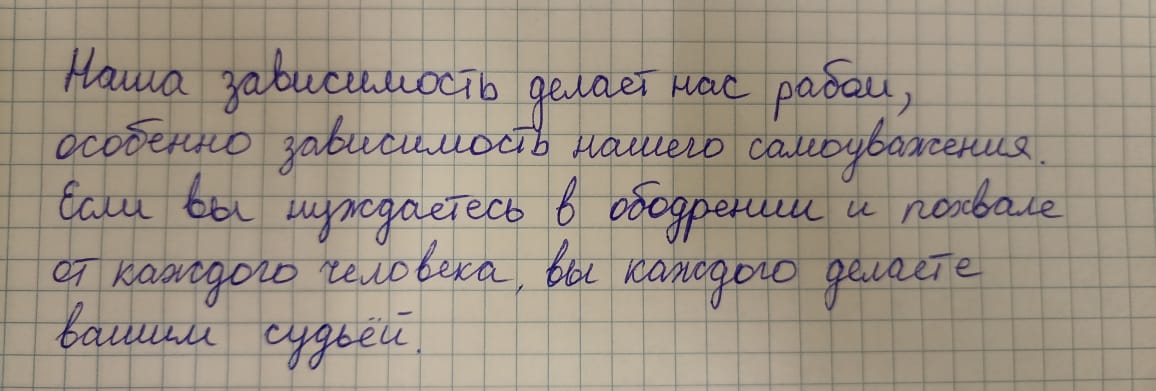 Наша зависимость делает нас рабом,
особенно зависимость нашего самоуважения.
Если вы нуждаетесь в ободрении и похвале
от каждого человека, вы каждого делаете
вашим судьёй.